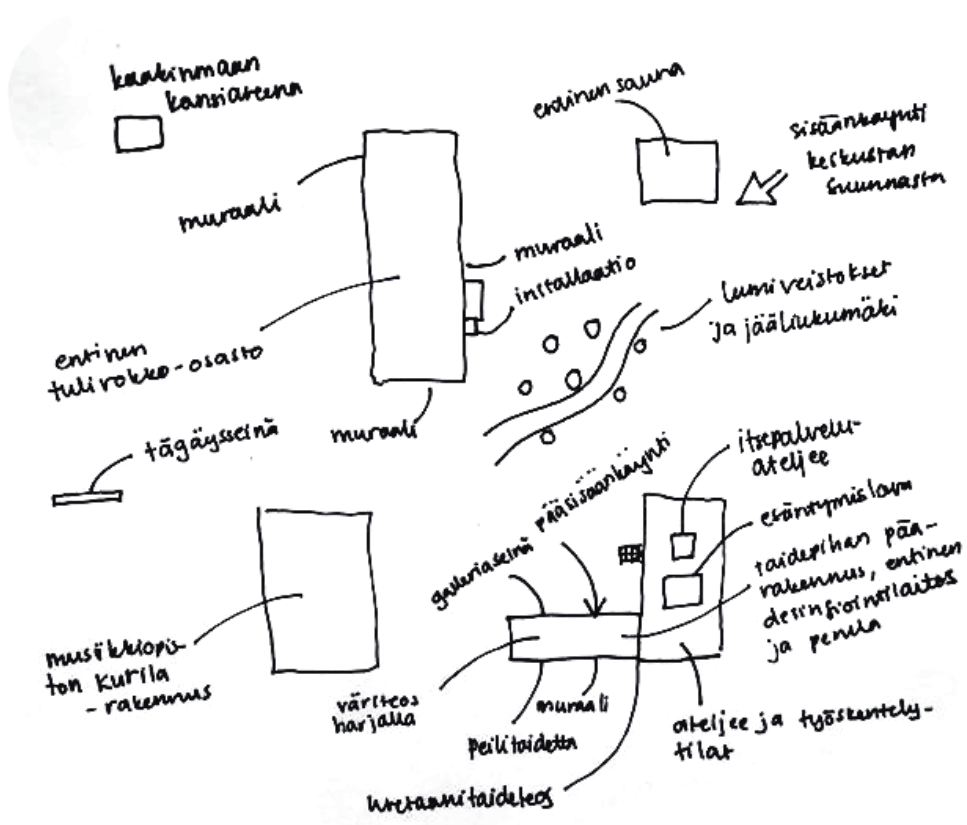 kaakinmaan
kansiareena
entinen sauna
sisäänkäynti
keskustan
suunnasta
muraali
muraali
installaatio
lumiveistokset
ja jääliukumäki
entinen
tulirokko-osasto
muraali
tägäysseinä
itsepalvelu-
ateljee
esiintymislava
galleriaseinä
pääsisäänkäynti
taidepihan pää-
rakennus, entinen
desinfiointilaitos
ja pesula
musiikkiopis-
ton kurila
-rakennus
väriteos
harjalla
muraali
peilitaidetta
ateljee ja työskentely-
tilat
uretaanitaideteos